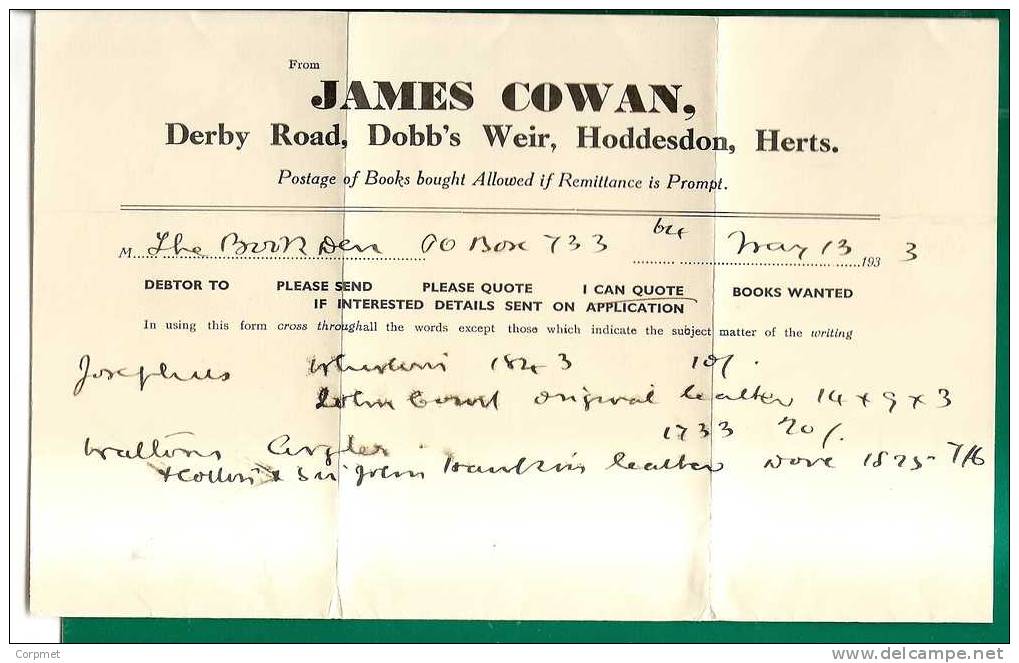 From
JAMES COWAN,
Derby Road, Dobb's Weir, Hoddesdon, Herts.
Postage of Books bought Allowed if Remittance is Prompt.
M The Book Den PO Box 733 May 13 193 3
DEBTOR TO PLEASE SEND PLEASE QUOTE I CAN QUOTE BOOKS WANTED
IF INTERESTED DETAILS SENT ON APPLICATION
In using this form cross through all the words except those which indicate the subject matter of the writing
Josephus Whistons 1843 10/.
John Court original leather 14 x 9 x 3
1733 20/.
Waltons Angler
+ Cotton & Sir John Hawkins leather 1825 7/6
Corpmet
www.delcampe.net